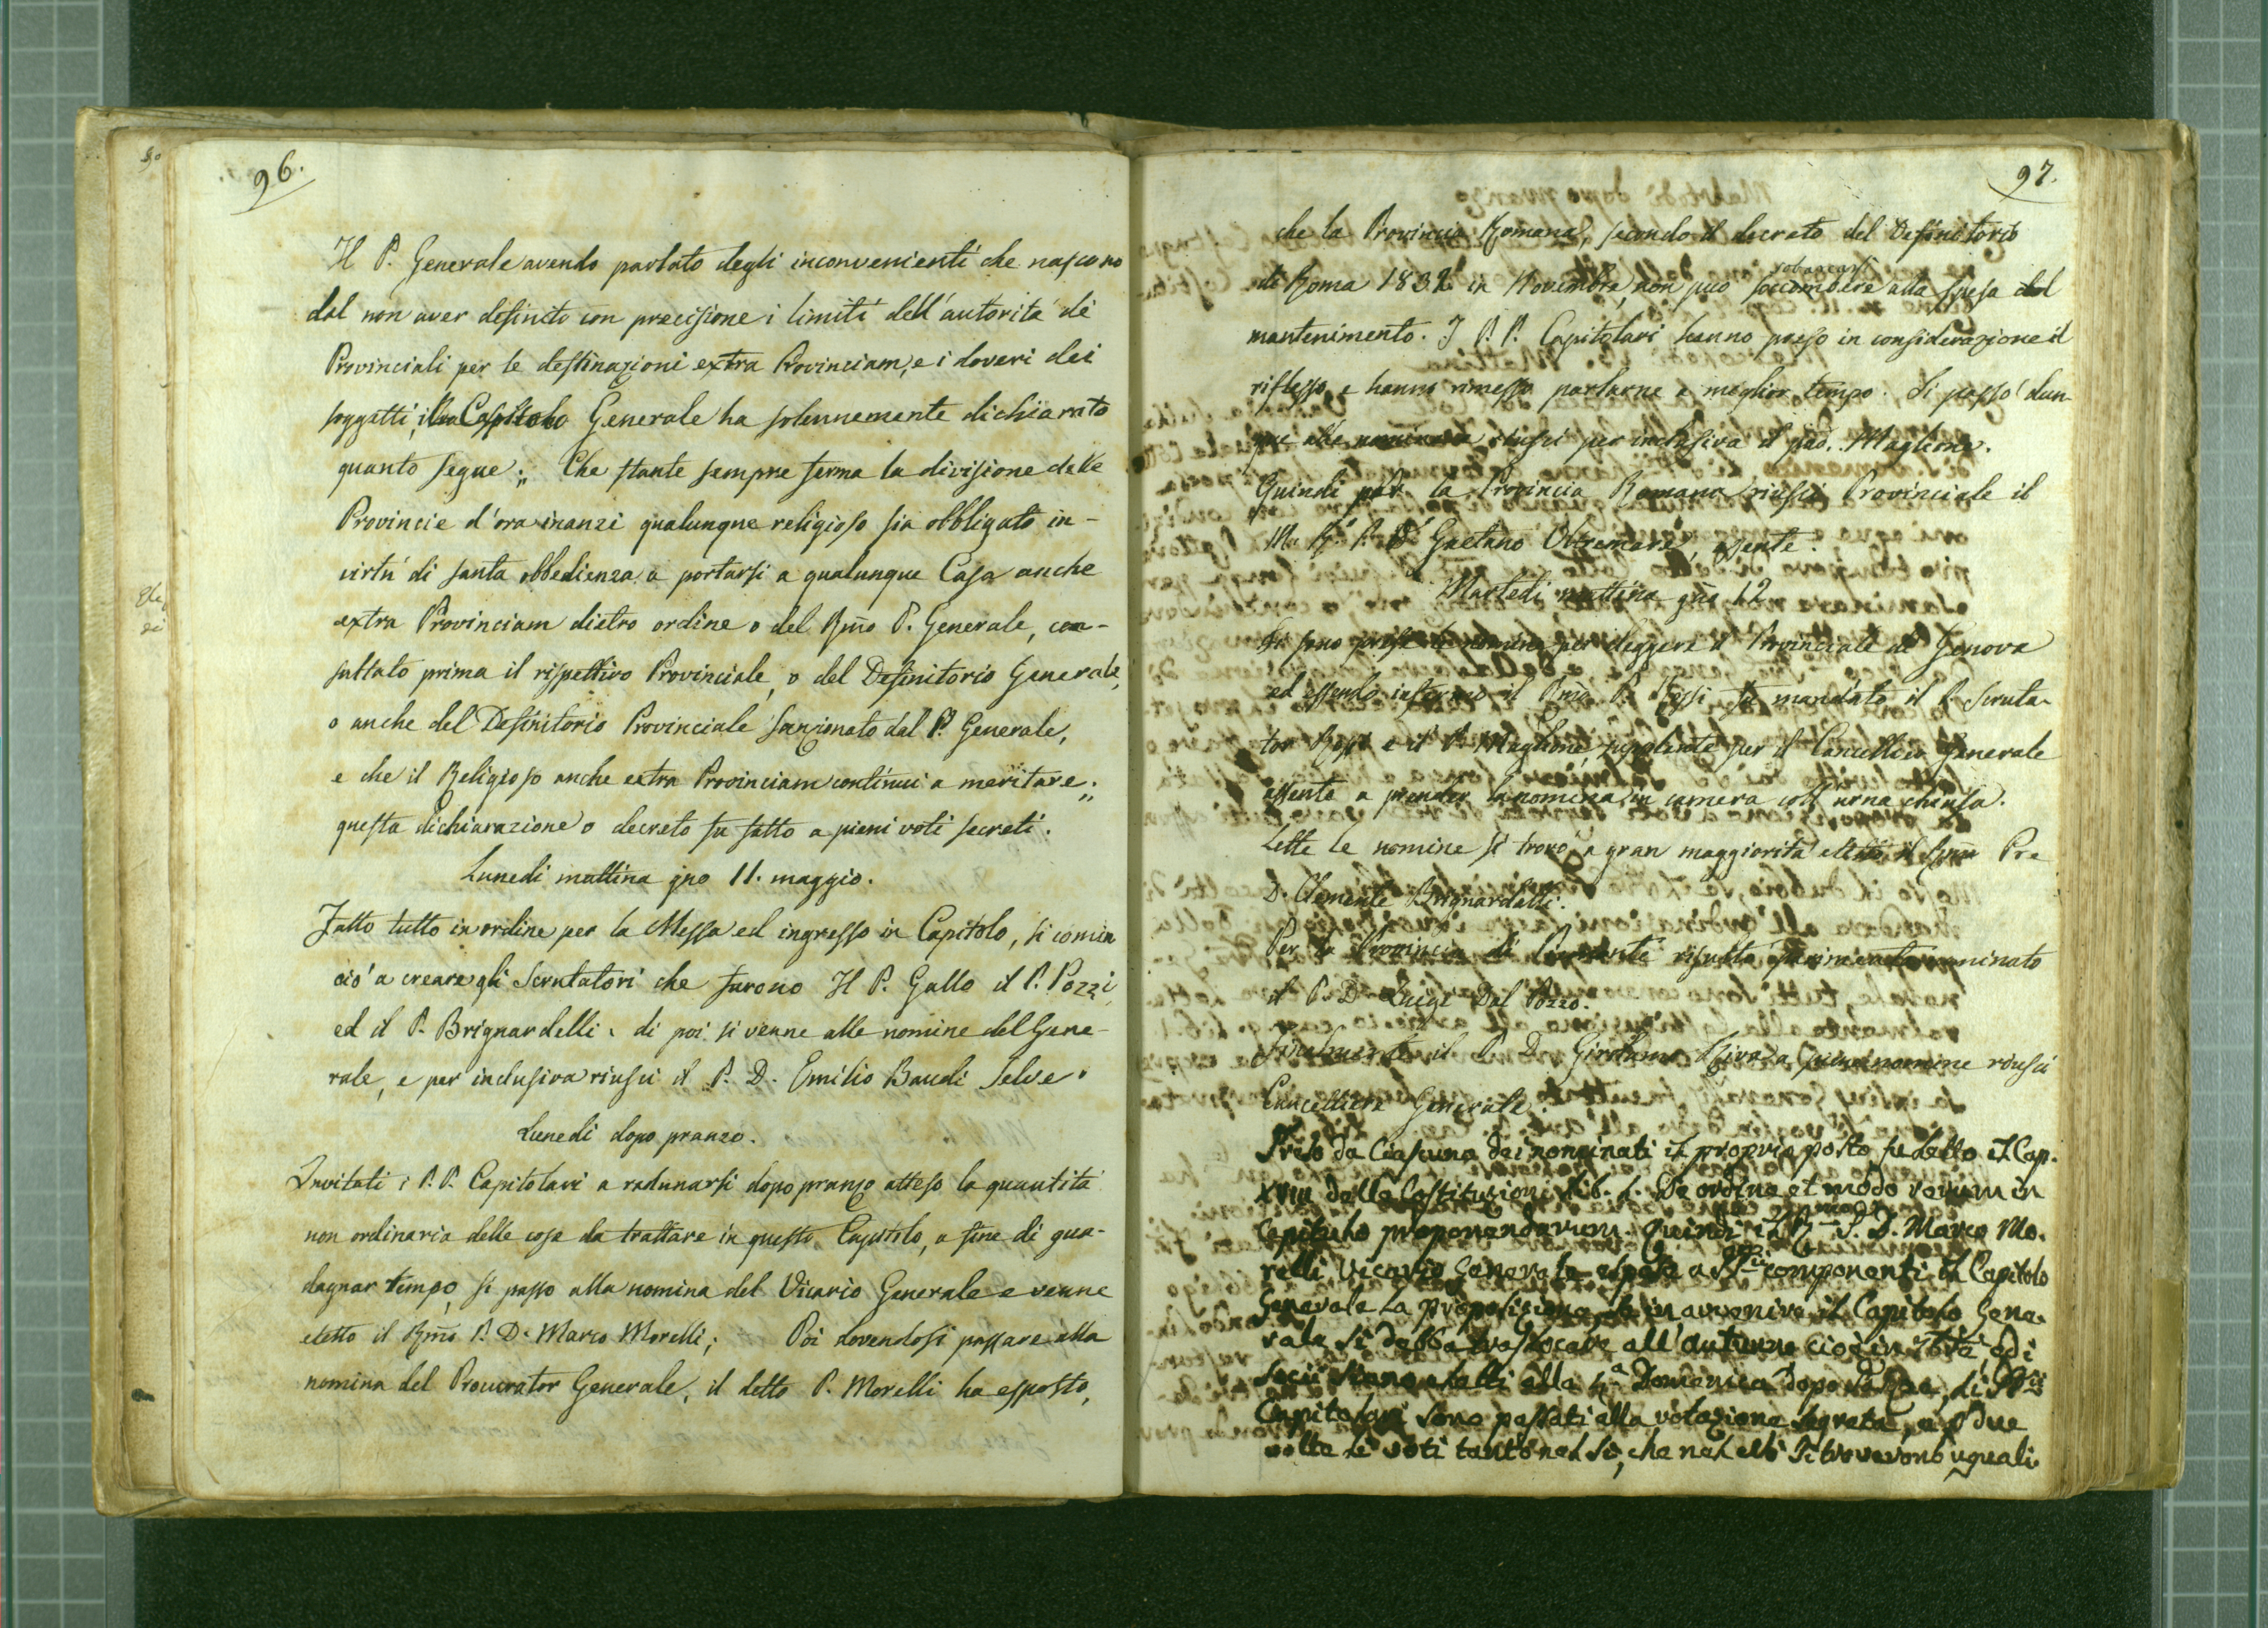 96.
Il P. Generale avendo parlato degli inconvenienti che nascono
dal non aver definito con precisione i limiti dell'autorità dè
Provinciali per le destinazioni extra Provinciam, e i doveri dei
soggetti, il Capitolo Generale ha solennemente dichiarato
quanto segue: „ Che stante sempre ferma la divisione delle
Provincie d'ora inanzi qualunque religioso sia obbligato in-
virtù di santa obbedienza a portarsi a qualunque Casa anche
extra Provinciam dietro ordine o del Rm̃o P. Generale, con-
sultato prima il rispettivo Provinciale, o del Definitorio Generale,
o anche del Definitorio Provinciale sanzionato dal P. Generale,
e che il Religioso anche extra Provinciam continui a meritare „;
questa dichiarazione o decreto fu fatto a pieni voti secreti.
Lunedi mattina gno 11. maggio.
Fatto tutto in ordine per la Messa ed ingresso in Capitolo, si comin
ciò a creare gli Scrutatori che furono Il P. Gallo il P. Pozzi,
ed il P. Brignardelli. di poi si venne alle nomine del Gene-
rale, e per inclusiva riuscì il P. D. Emilio Baudi Selve.
Lunedi dopo pranzo.
Invitati i P.P. Capitolari a radunarsi dopo pranzo atteso la quantità
non ordinaria delle cose da trattare in questo Capitolo, a fine di gua-
dagnar tempo, si passo alla nomina del Vicario Generale e venne
eletto il Rm̃o P. D. Marco Morelli; Poi dovendosi passare alla
nomina del Procurator Generale, il detto P. Morelli ha esposto,
97.
che la Provincia Romana, secondo il decreto del Definitorio
di Roma 1832 in Novembre, non può soccombere alla spesa del
mantenimento. I P.P. Capitolari hanno preso in considerazione il
riflesso, e hanno rimesso parlarne a miglior tempo. Si passò dun-
que alla nomina e riuscì per inclusiva il pad. Maglione.
Quindi per la Provincia Romana riuscì Provinciale il
M. R. P. D. Gaetano assente.
Martedi mattina gno 12
Si sono prese le nomine per eleggere il Provinciale di Genova
ed essendo infermo il Rmo P. fu mandato il P. Scruta-
tor e il P. Maglione, supplente per il Cancelliere Generale
assente a prender la nomina in camera coll'urna chiusa.
Lette le nomine si trovò a gran maggiorità eletto il Rmo Pre
D. Clemente Brignardelli.
Per la Provincia di risultò parimente nominato
il P. D. Luigi Dal Pozzo.
Finalmente il P. D. Girolamo nomine riuscì
Cancelliere Generale.
Preso da ciascuno dei nominati il proprio posto fu letto il Cap.
XVIII delle Costituzioni Lib. 1. De ordine et modo rerum in
Capitulo proponendarum. Quindi il Rmo P. D. Marco Mo-
relli Vicario Generale espose a componenti il Capitolo
Generale la proposizione se in avvenire il Capitolo Gene-
rale si debba traslocare all'autunno cioè in ed i
Socii siano eletti alla Domenica dopo li
Capitolari sono passati alla votazione segreta, e due
volte i voti tanto nel sì, che nel si trovarono uguali.